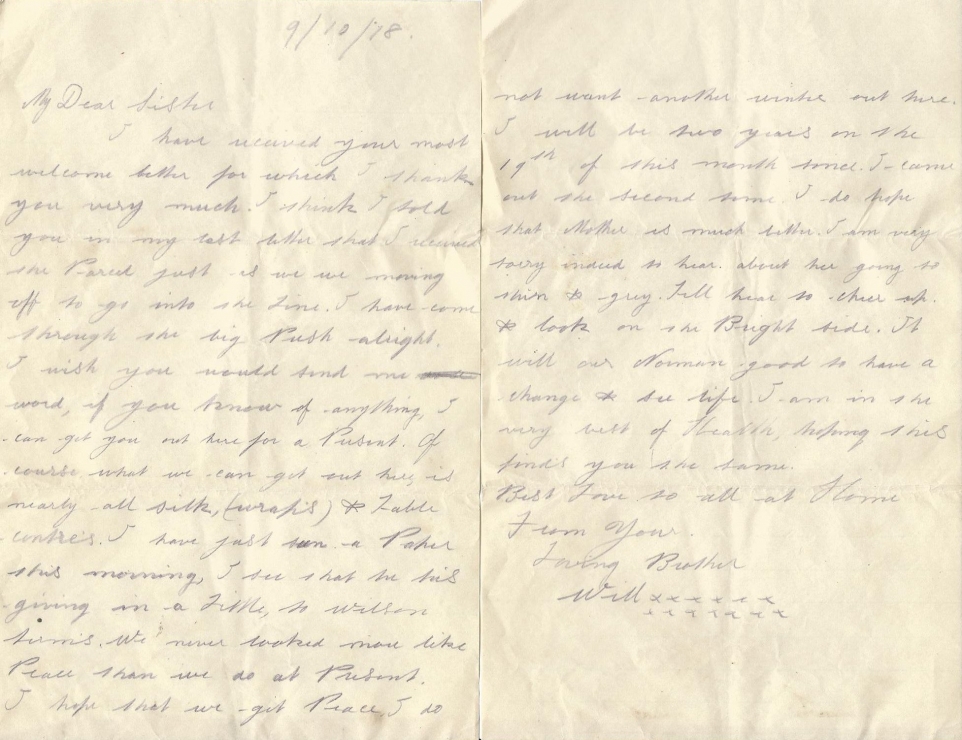 9/10/18.
My Dear Sister
I have received your most
welcome letter for which I thank
you very much. I think I told
you in my last letter that I received
the Parcel just as we we moving
off to go into the Line. I have come
through the big Push alright.
I wish you would send me
word, if you know of anything, I
can get you out here for a Present. Of
course what we can get out here, is
nearly all silk, (wraps) & Table
centres. I have just seen a Paper
this morning, I see that he his
giving in a Little, to Wilson
terms. We never looked more like
Peace than we do at Present.
I hope that we get Peace, I do
not want another winter out here.
I will be two years on the
19th of this month since I came
out the second time. I do hope
that Mother is much better. I am very
sorry indeed to hear about her going so
thin & grey. Tell hear to cheer up.
& look on the Bright side. It
will our Norman good to have a
change & see life. I am in the
very best of Health, hoping this
finds you the same.
Best Love to all at Home
From Your.
Loving Brother
Will x x x x x x
x x x x x x x